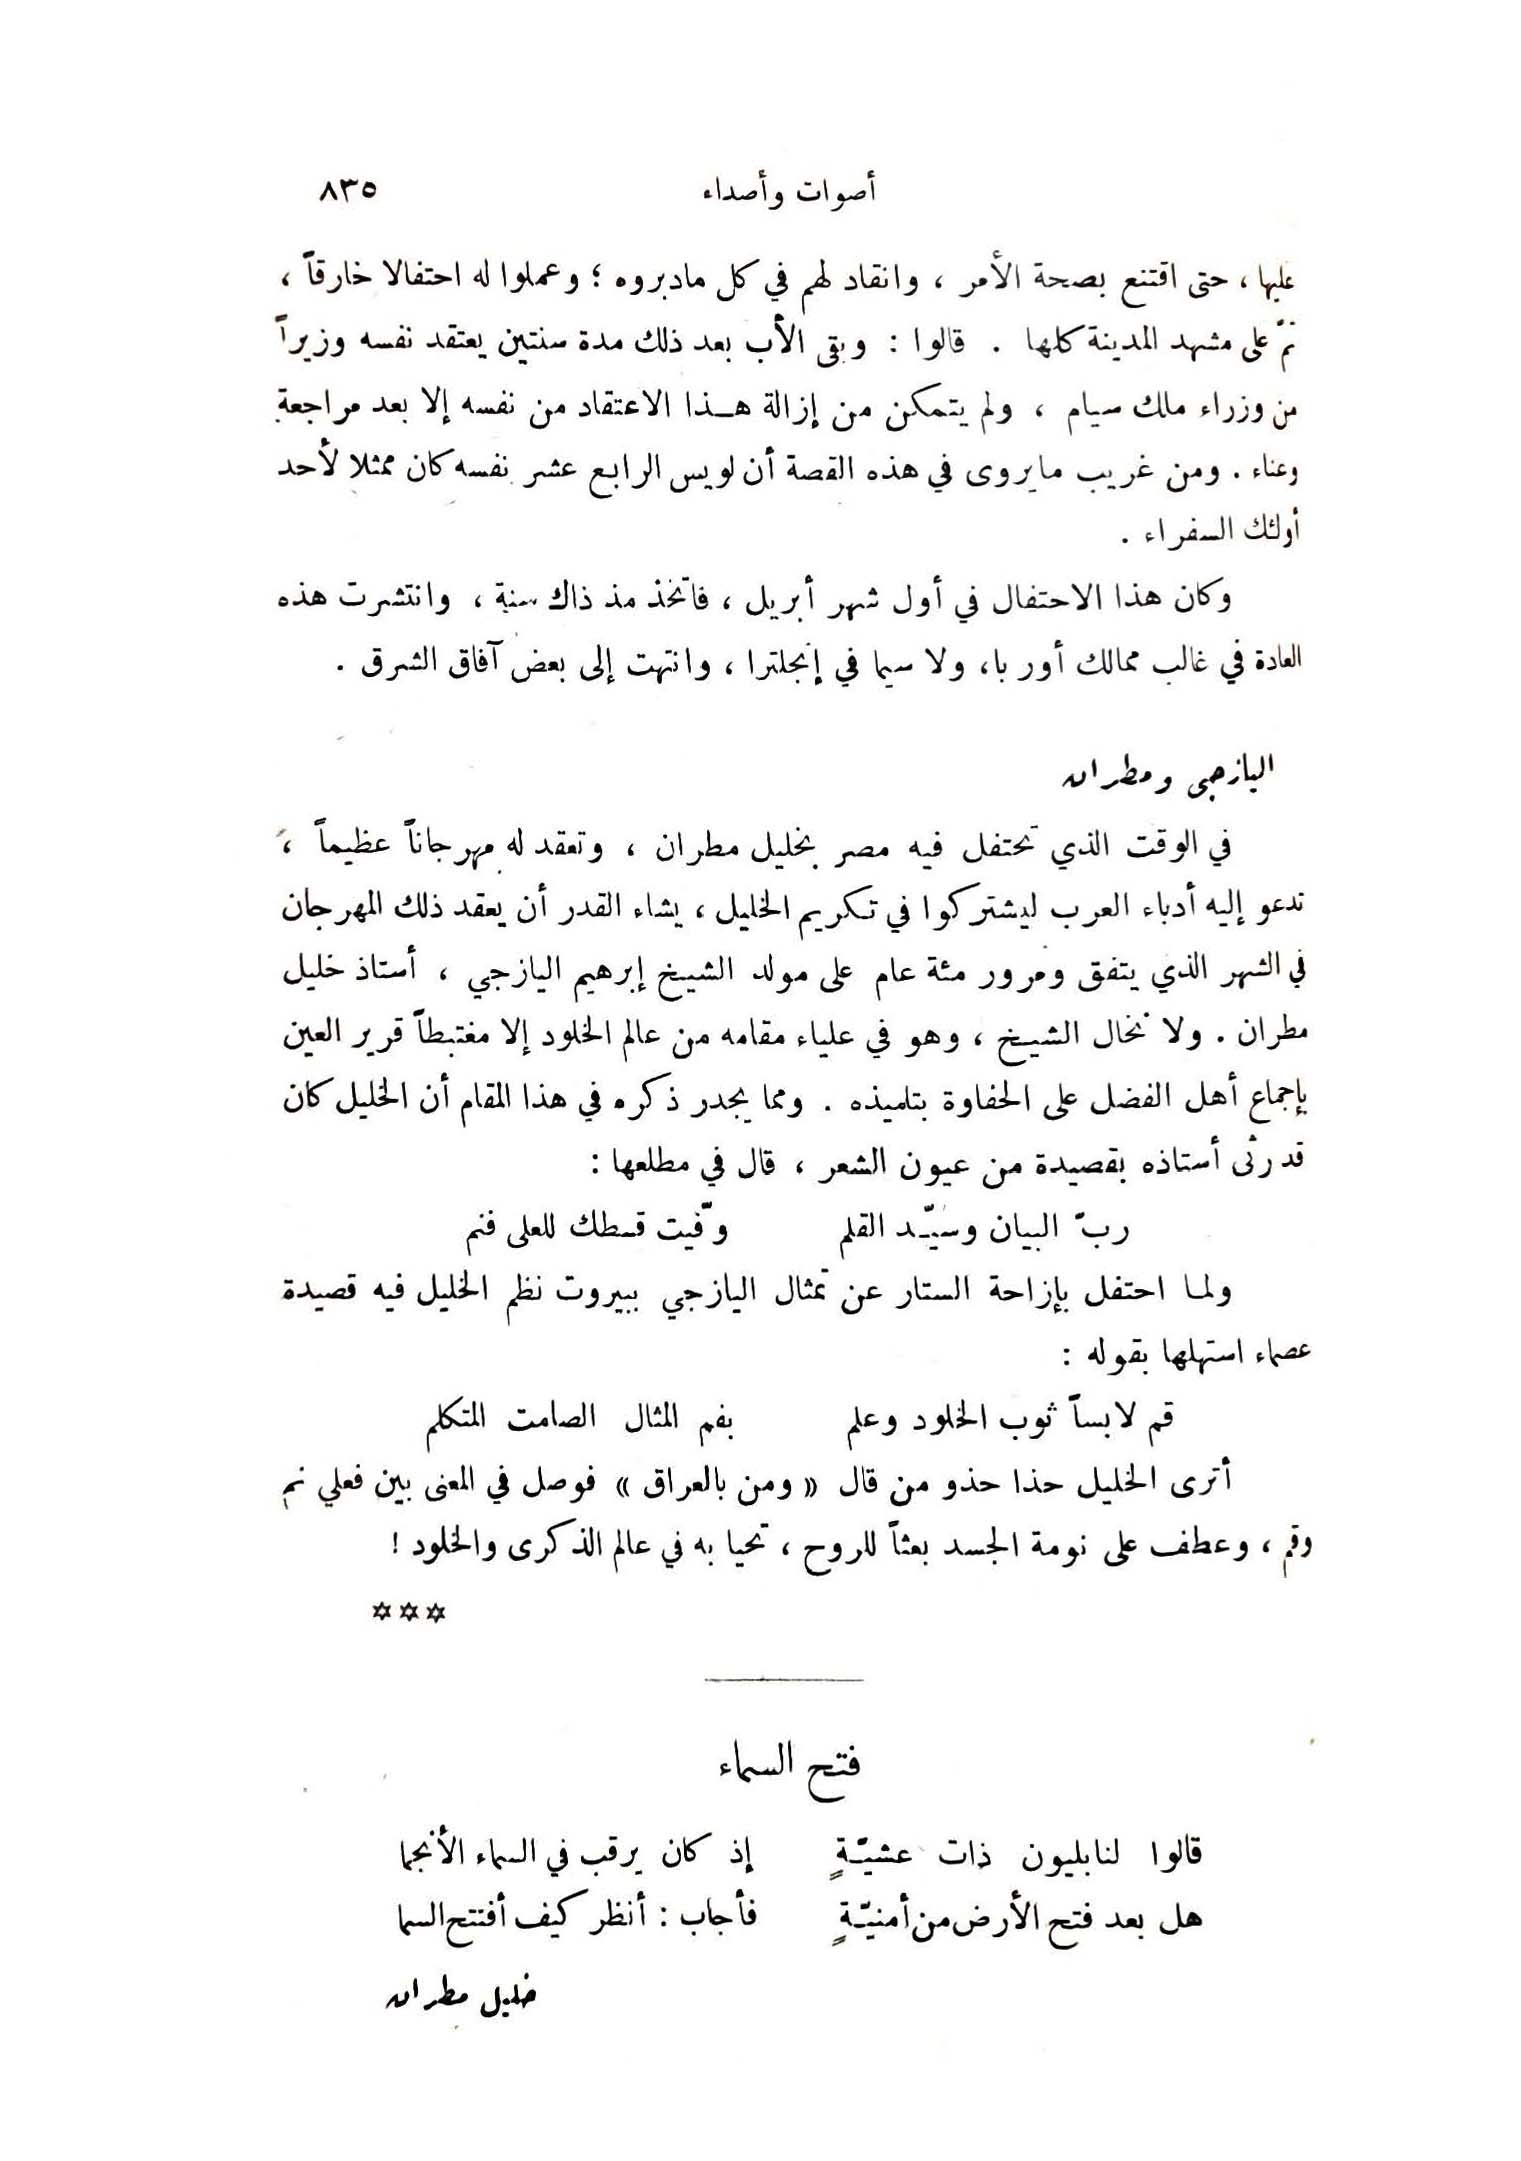 أصوات وأصداء ٨٣٥
عليها ، حتى اقتنع بصحة الأمر ، وانقاد لهم في كل مادبروه ؛ وعملوا له احتفالا خارقاً ،
تمّ على مشهد المدينة كلها . قالوا : وبقى الأب بعد ذلك مدة سنتين يعتقد نفسه وزيراً
من وزراء ملك سيام ، ولم يتمكن من إزالة هـذا الاعتقاد من نفسه إلا بعد مراجعة
وعناء . ومن غريب مايروى في هذه القصة أن لويس الرابع عشر نفسه كان ممثلا لأحد
أولئك السفراء .
وكان هذا الاحتفال في أول شهر أبريل ، فاتخذ مذ ذاك سنة ، وانتشرت هذه
العادة في غالب ممالك أوربا، ولا سيما في إنجلترا ، وانتهت إلى بعض آفاق الشرق .
اليازجى ومطران
في الوقت الذي تحتفل فيه مصر بخليل مطران ، وتعقد له مهرجاناً عظيماً ،
تدعو إليه أدباء العرب ليشتركوا في تكريم الخليل ، يشاء القدر أن يعقد ذلك المهرجان
في الشهر الذي يتفق ومرور مئة عام على مولد الشيخ إبرهيم اليازجي ، أستاذ خليل
مطران . ولا نخال الشيخ ، وهو في علياء مقامه من عالم الخلود إلا مغتبطاً قرير العين
بإجماع أهل الفضل على الحفاوة بتلميذه . ومما يجدر ذكره في هذا المقام أن الخليل كان
قد رثى أستاذه بقصيدة من عيون الشعر ، قال في مطلعها :
ربّ البيان وسيّـد القلم وفّيت قسطك للعلى فنم
ولما احتفل بإزاحة الستار عن تمثال اليازجي ببيروت نظم الخليل فيه قصيدة
عصماء استهلها بقوله :
قم لابساً ثوب الخلود وعلم بفم المثال الصامت المتكلم
أترى الخليل حذا حذو من قال « ومن بالعراق » فوصل في المعنى بين فعلي نم
وقم ، وعطف على نومة الجسد بعثاً للروح ، تحيا به في عالم الذكرى والخلود !
✡✡✡
فتح السماء
قالوا لنابليون ذات عشيّـةٍ إذ كان يرقب في السماء الأنجما
هل بعد فتح الأرض من أمنيّـةٍ فأجاب : أنظر كيف أفتتح السما
خليل مطران